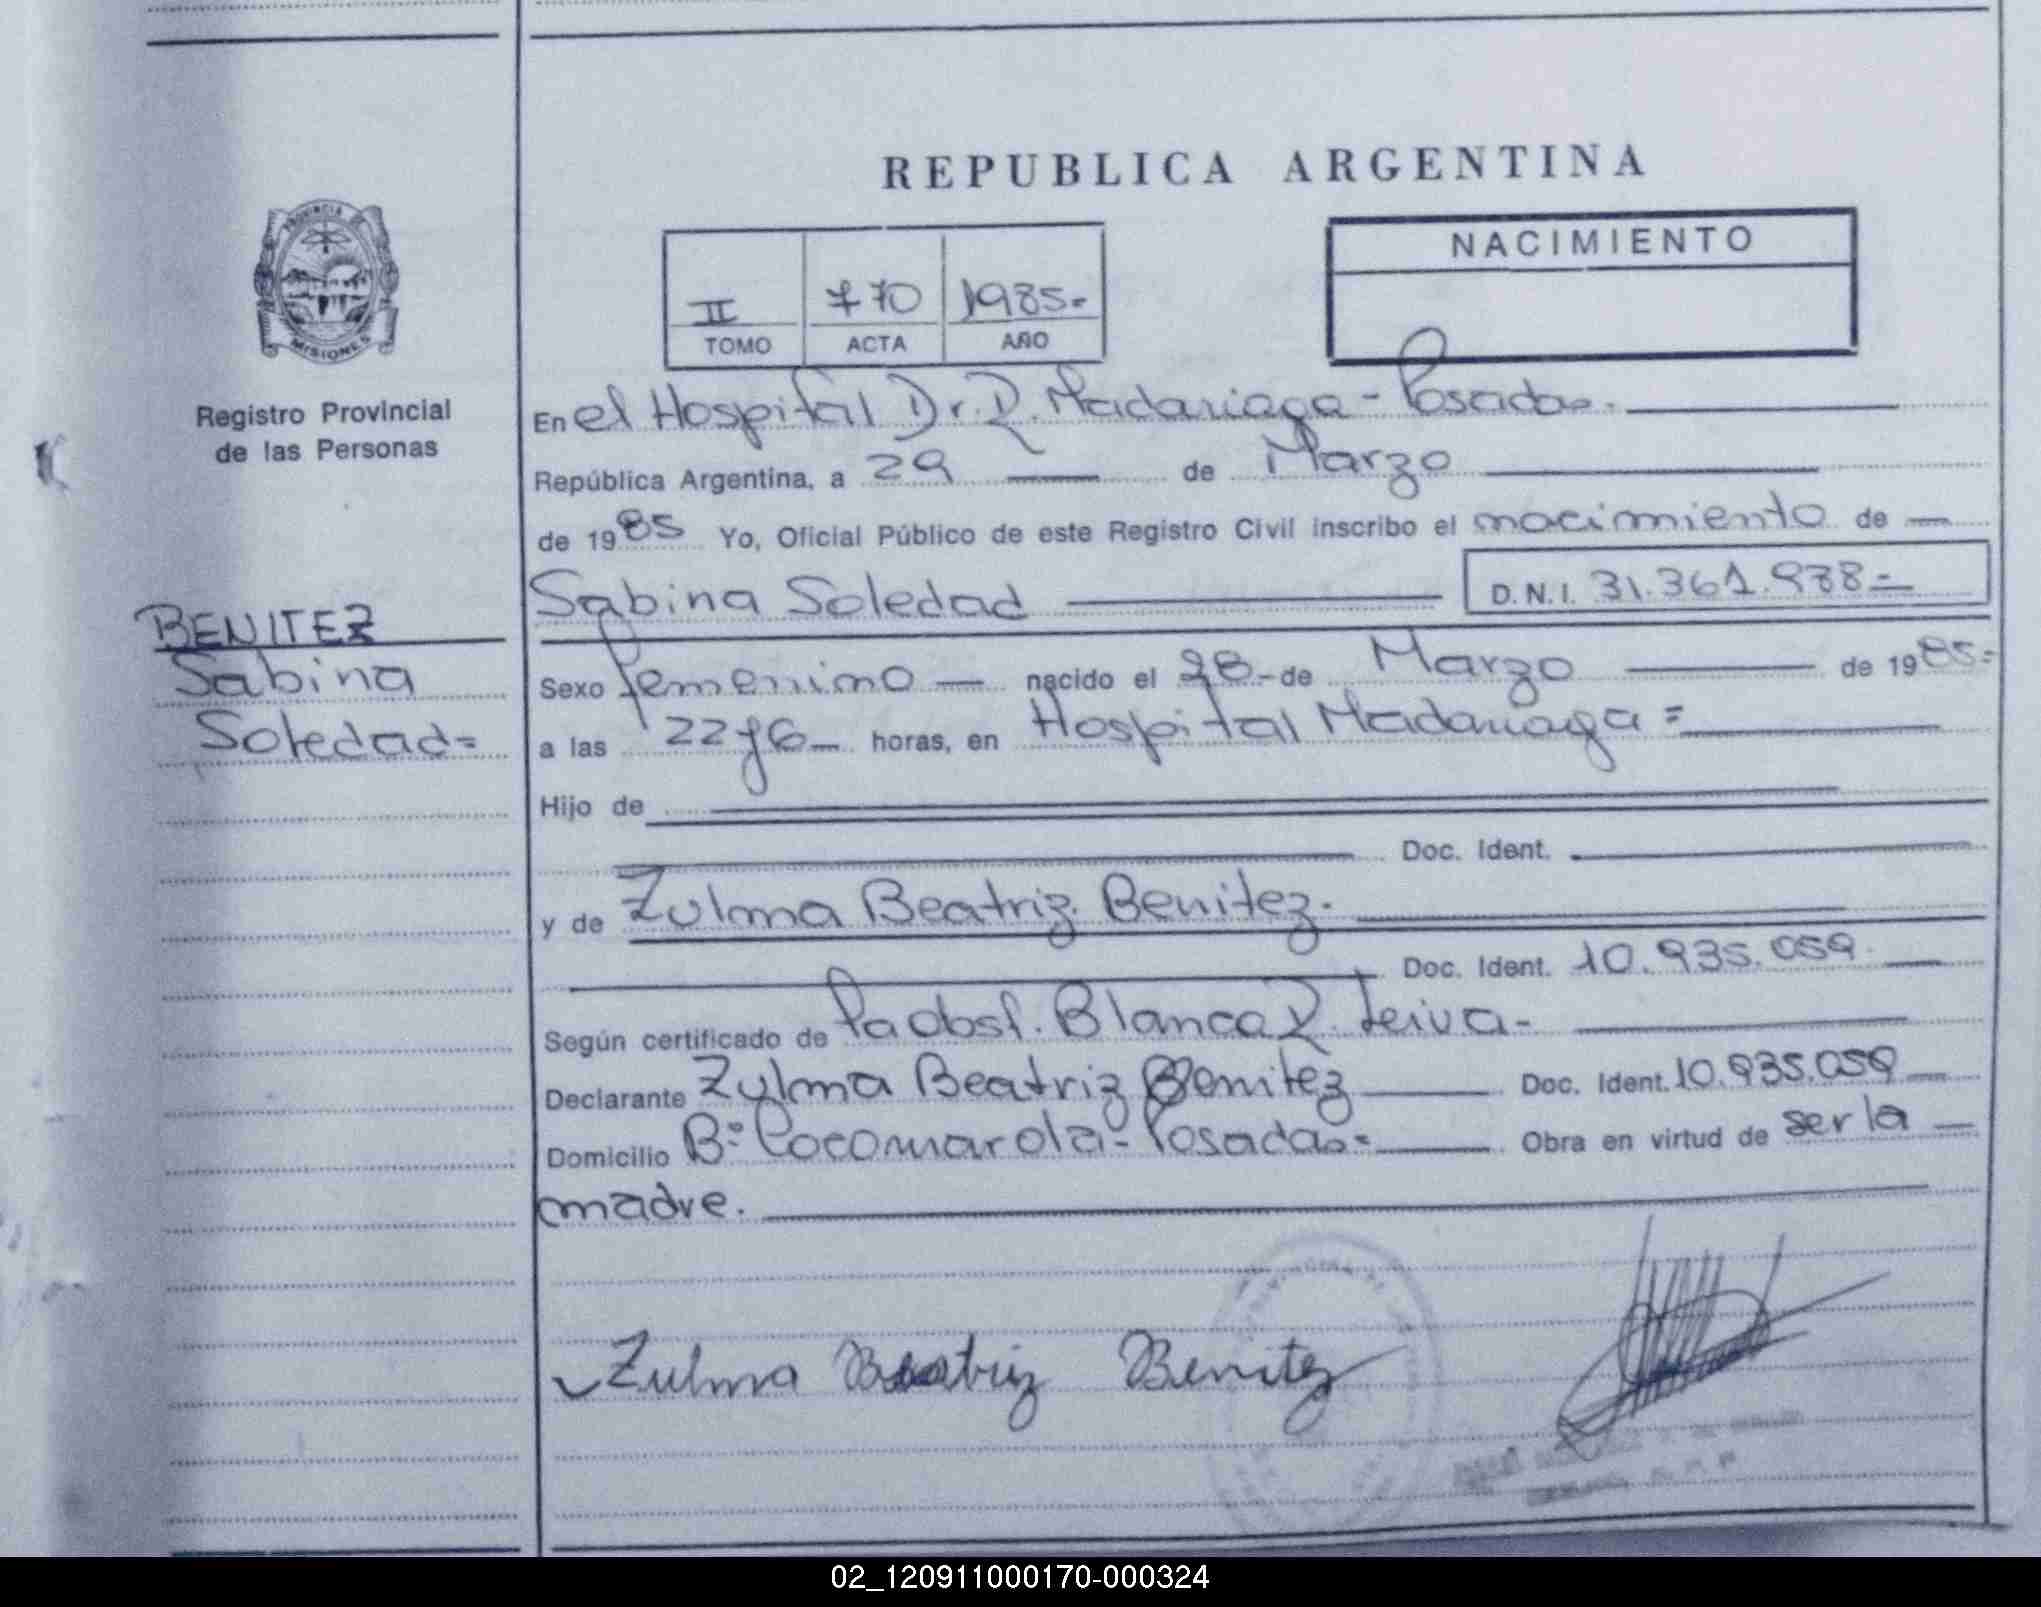 REPUBLICA ARGENTINA
PROVINCIA DE
MISIONES
Registro Provincial
de las Personas
II 770 1985-
TOMO ACTA AÑO
NACIMIENTO
En el Hospital Dr. R. Madariaga - Posadas.
República Argentina, a 29 de Marzo
de 1985 Yo, Oficial Público de este Registro Civil inscribo el nacimiento de
Sabina Soledad D.N.I. 31.361.978=
BENITEZ
Sabina
Soledad=
Sexo femenino nacido el 28- de Marzo de 1985=
a las 22 y 6 horas, en Hospital Madariaga=
Hijo de
Doc. Ident.
y de Zulma Beatriz Benitez.
Doc. Ident. 10.935.059
Según certificado de Blanca R. Leiva-
Declarante Zulma Beatriz Benitez Doc. Ident. 10.935.059
Domicilio B° Cocomarola - Posadas= Obra en virtud de ser la
madre.
Zulma Beatriz Benitez
02_120911000170-000324